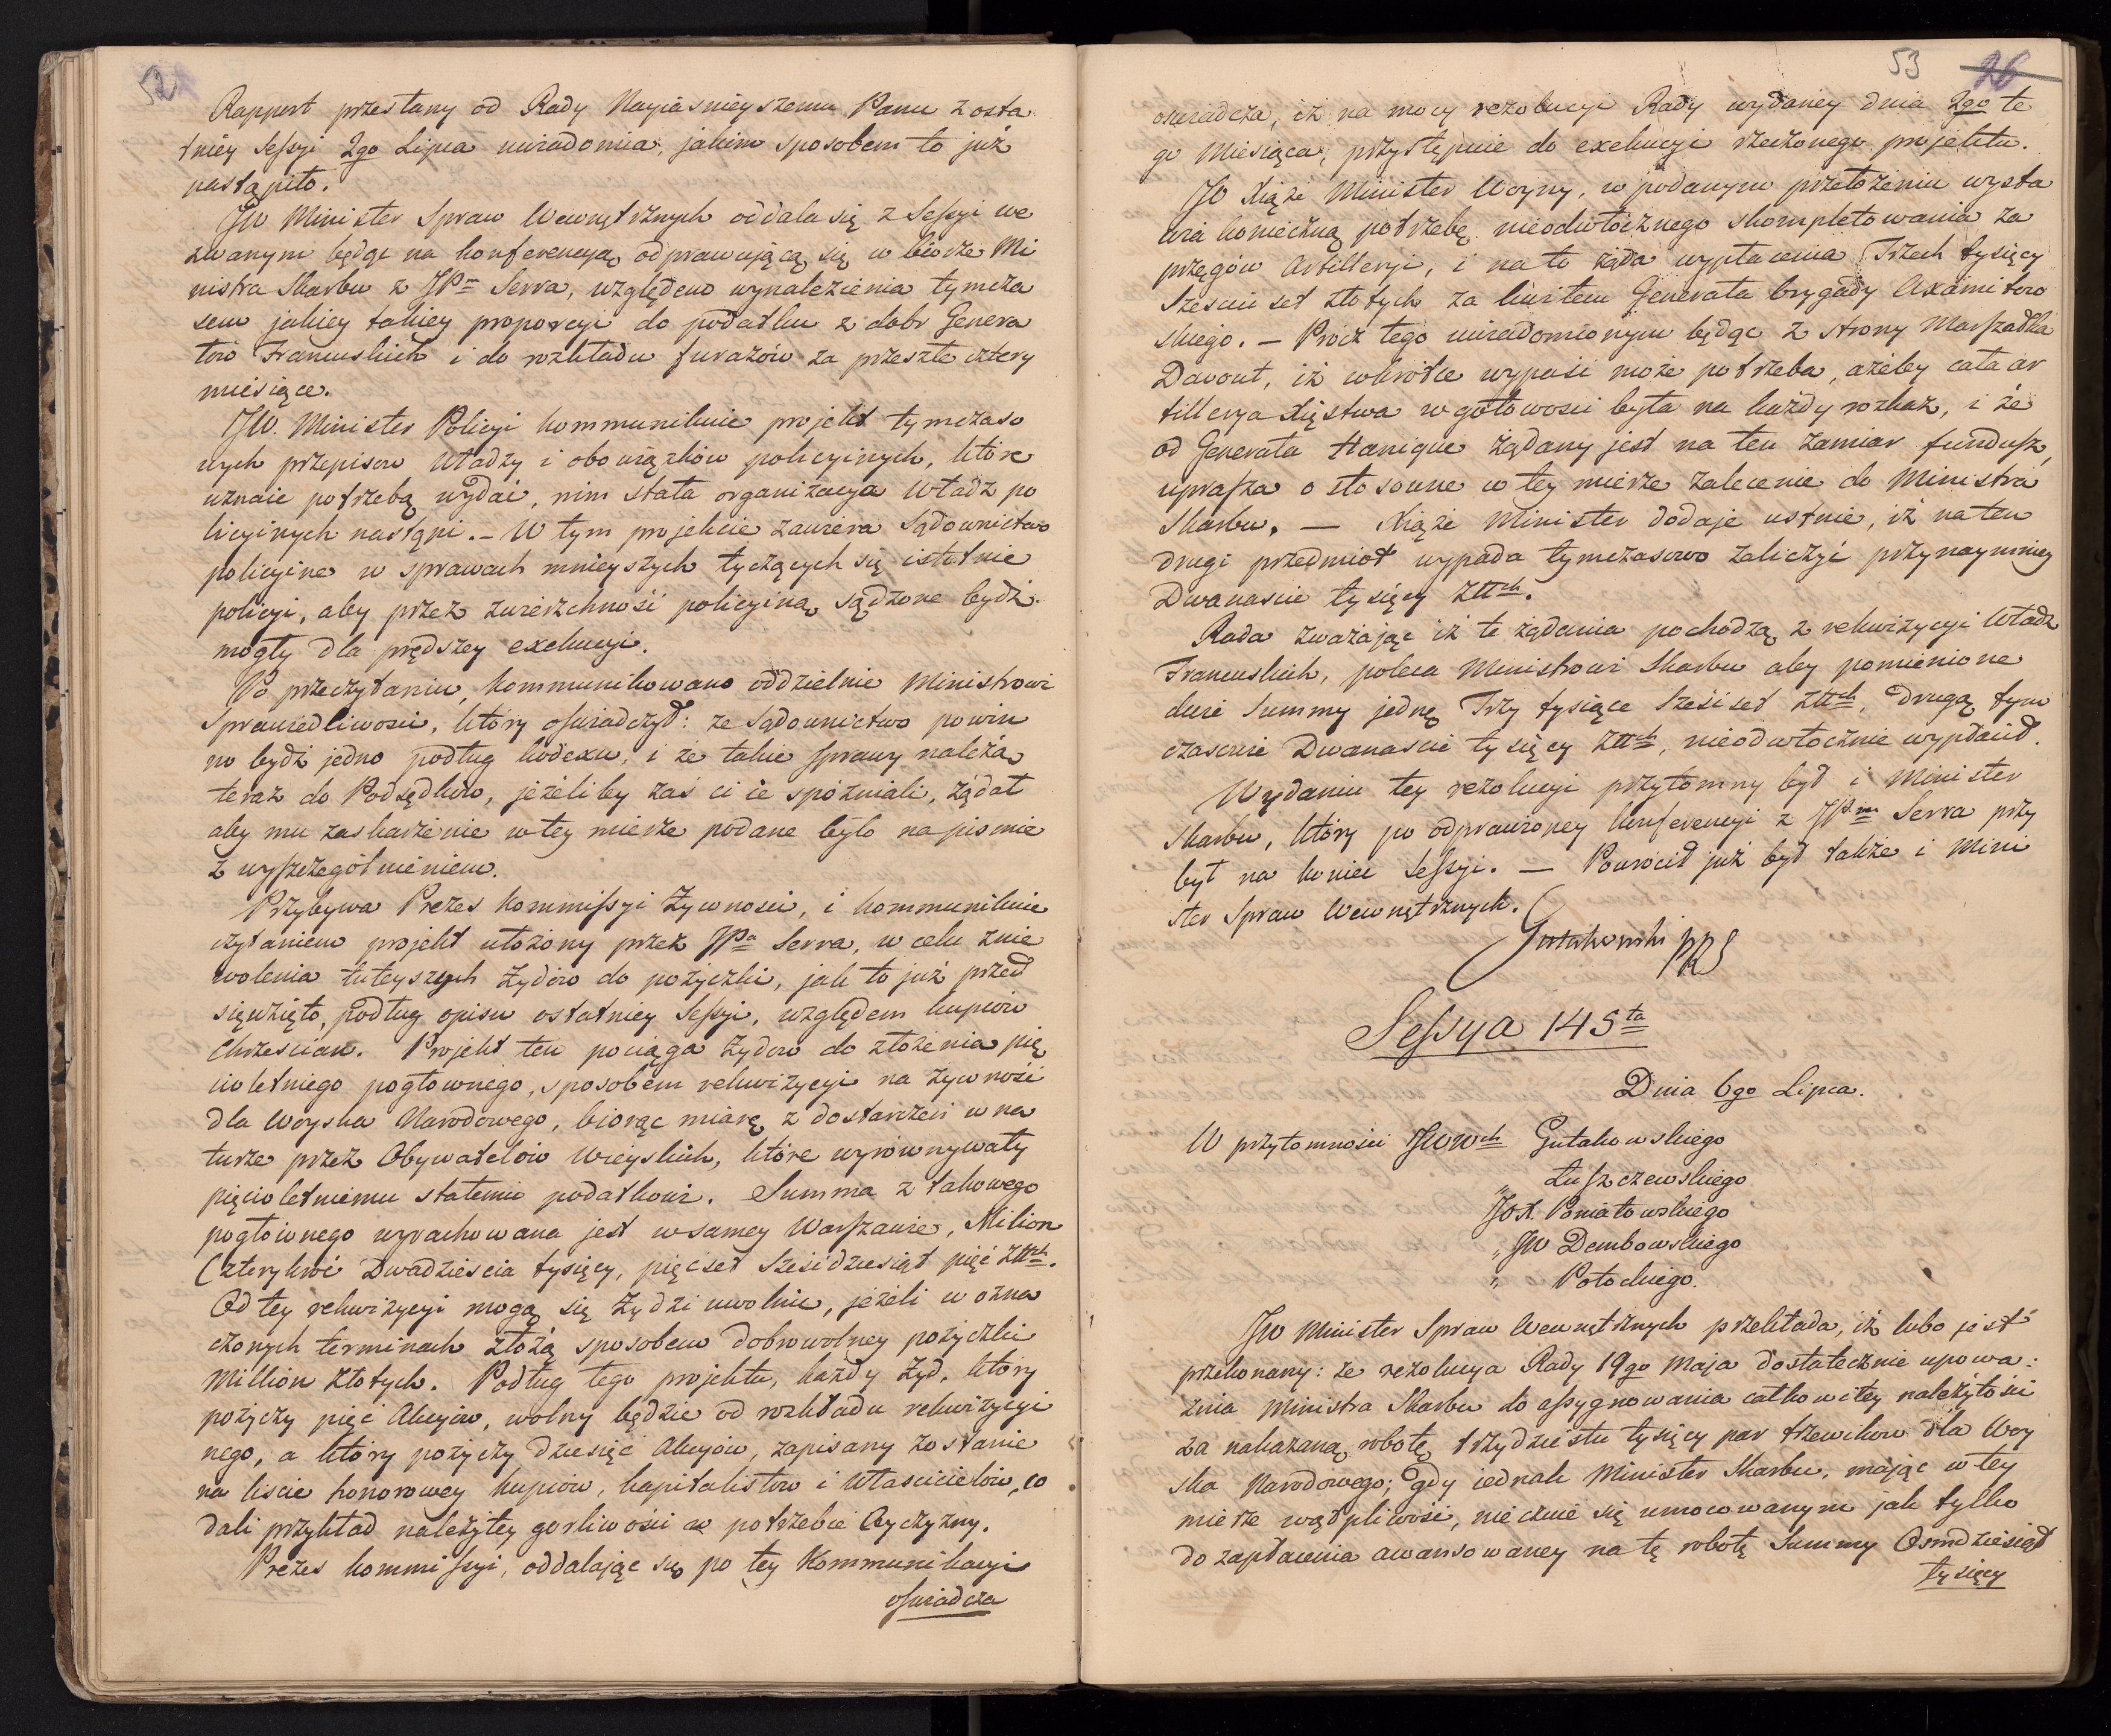 52
Rapport przesłany od Rady Nayiaśnieyszemu Panu z osta
tniéy Sessyi 2go Lipca uwiadomia, jakim sposobem to już
nastąpiło.
JW Minister Spraw Wewnętrznych oddala się z Sessyi we
zwanym będąc na konferencyą odprawuiącą się w biórze Mi
nistra Skarbu z JPm Serra, względem wynalezienia tymcza
sem jakiey takiey proporcyi do podatku z dobr Genera
łów Francuskich i do rozkładu furażów za przeszłe cztery
miesiące.
JW. Minister Policyi kommunikuie projekt tymczaso
wych przepisow Władzy i obowiązków policyinych, które
uznaie potrzebą wydać, nim stała organizacya Władz po
licyinych nastąpi. – W tym projekcie zawiera Sądownictwo
policyine w sprawach mnieyszych tyczących się istotnie
policyi, aby przez zwierzchność policyiną sądzone bydź
mogły dla prędszey exekucyi.
Po przeczytaniu, kommunikowano oddzielnie Ministrowi
Sprawiedliwości, który oświadczył: ze Sądownictwo powin
no bydź jedno podług kodexu, i ze takie sprawy należą
teraz do Podsędków, jeżeliby zaś ci ie spóźniali, żądał
aby mu zaskarżenie w tey mierze podane było na pismie
z wyszczególnieniem.
Przybywa Prezes Kommissyi Żywnosci, i kommunikuie
czytaniem projekt ułożony przez JPa Serra, w celu znie
wolenia tuteyszych Żydów do pożyczki, jak to już przed
sięwzięto, podług opisu ostatniey Sessyi, względem kupców
Chrześcian. Projekt ten pociąga Żydów do złożenia pię
cioletniego pogłownego, sposobem rekwizycyi na żywność
dla Woyska Narodowego, biorąc miarę z dostarczeń w na
turze przez Obywatelów Wieyskich, które wyrównywały
pięcioletniemu stałemu podatkowi. Summa z takowego
pogłównego wyrachowana jest w samey Warszawie, Milion
Czterykroć Dwadzieścia tysięcy, pięcset sześćdziesiąt pięć Złłch.
Od tey rekwizycyi mogą się Żydzi uwolnić, jeżeli w ozna
czonych terminach złożą sposobem dobrowolney pożyczki
Million złotych. Podług tego projektu, każdy Żyd, który
pożyczy pięć Akcyów, wolny będzie od rozkładu rekwizycyi
nego, a który pożyczy dziesięć Akcyów, zapisany zostanie
na liscie honorowey kupców, kapitalistów i Właścicielów, co
dali przykład należytey gorliwości w potrzebie Oyczyzny.
Prezes kommissyi, oddalając się po tey Kommunikacyi
oświadcza
53 26
oświadcza, iż na mocy rezolucyi Rady wydaney dnia 2go te
go Miesiąca, przystępuie do exekucyi rzeczonego projektu.
JO Xiąże Minister Woyny, w podanym przełożeniu wysta
wia konieczną potrzebę nieodwłócznego skompletowania za
przęgów Artilleryi, i na to żąda wypłacenia Trzech tysięcy
Sześciu set złotych za kwitem Generała brygady Axamitow
skiego. – Procz tego uwiadomionym będąc z strony Marszałka
Davout, iż wkrótce wypaść może potrzeba, ażeby cała ar
tillerya Xięstwa w gotowości była na każdy rozkaz, i że
od Generała Hanique żądany jest na ten zamiar fundusz,
uprasza o stosowne w tey mierze zalecenie do Ministra
Skarbu. — Xiąże Minister dodaje ustnie, iż na ten
drugi przedmiot wypada tymczasowo zaliczyć przynaymniey
Dwanascie tysięcy Złłch.
Rada zważając iż te żądania pochodzą z rekwizycyi Władz
Francuskich, poleca Ministrowi Skarbu aby pomienione
dwie Summy jednę Trzy tysiące Sześćset Złłch, drugą tym
czasowie Dwanascie tysięcy Złłch, nieodwłocznie wypłacił.
Wydaniu tey rezolucyi przytomny był i Minister
Skarbu, który po odprawioney konferencyi z JPm Serra przy
był na koniec Sessyi. — Powrócił już był także i Mini
ster Spraw Wewnętrznych.
Gutakowski PRS
Sessya 145ta
Dnia 6go Lipca.
W przytomności JWWch Gutakowskiego
„ Łuszczewskiego
JOX. Poniatowskiego
„ JW Dembowskiego
„ Potockiego.
JW Minister Spraw Wewnętrznych przekłada, iż lubo jest
przekonany: że rezolucya Rady 19go Maja dostatecznie upowa:
żnia Ministra Skarbu do assygnowania całkowitey należytości
za nakazaną robotę trzydziestu tysięcy par trzewików dla Woy
ska Narodowego; gdy iednak Minister Skarbu, mając w tey
mierze wątpliwość, nie czuie się umocowanym jak tylko
do zapłacenia awansowaney na tę robotę Summy Osmdziesiąt
tysięcy